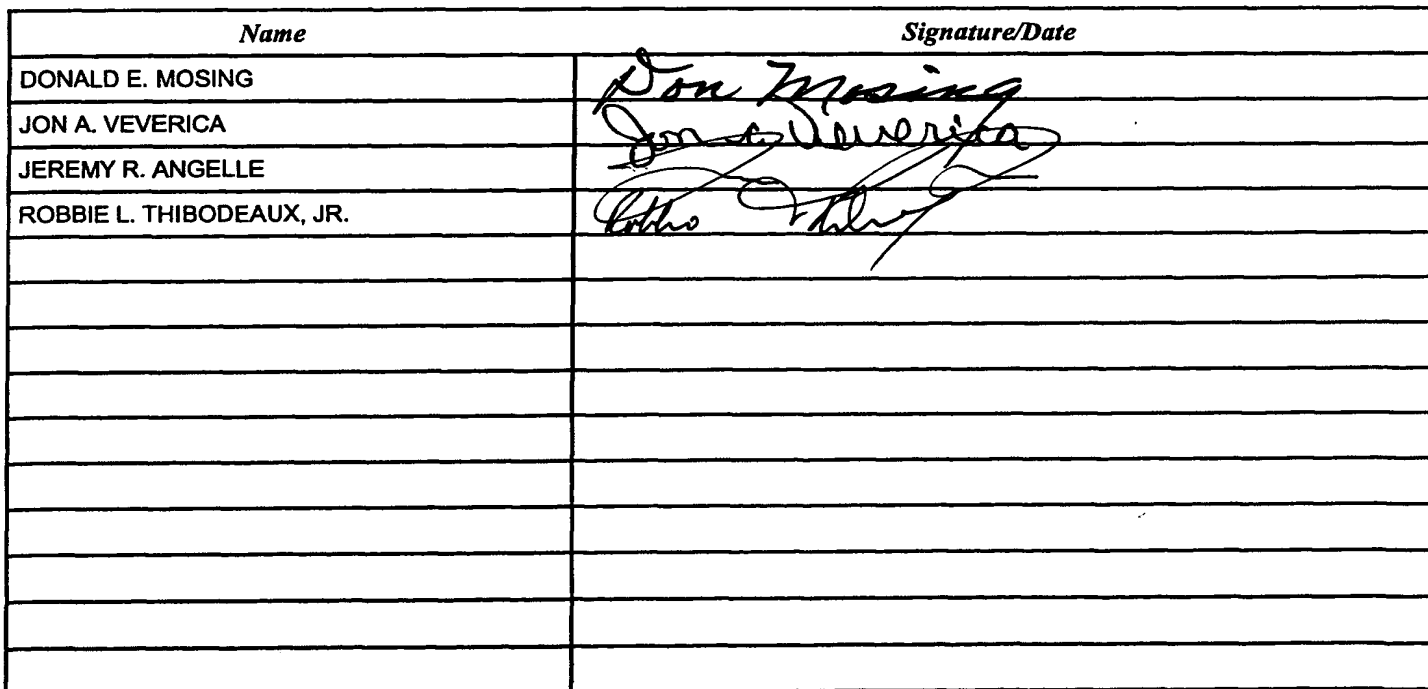 Name Signature/Date
DONALD E. MOSING Don Mosing
JON A. VEVERICA Jon A Veverica
JEREMY R. ANGELLE
ROBBIE L. THIBODEAUX, JR. Robbie